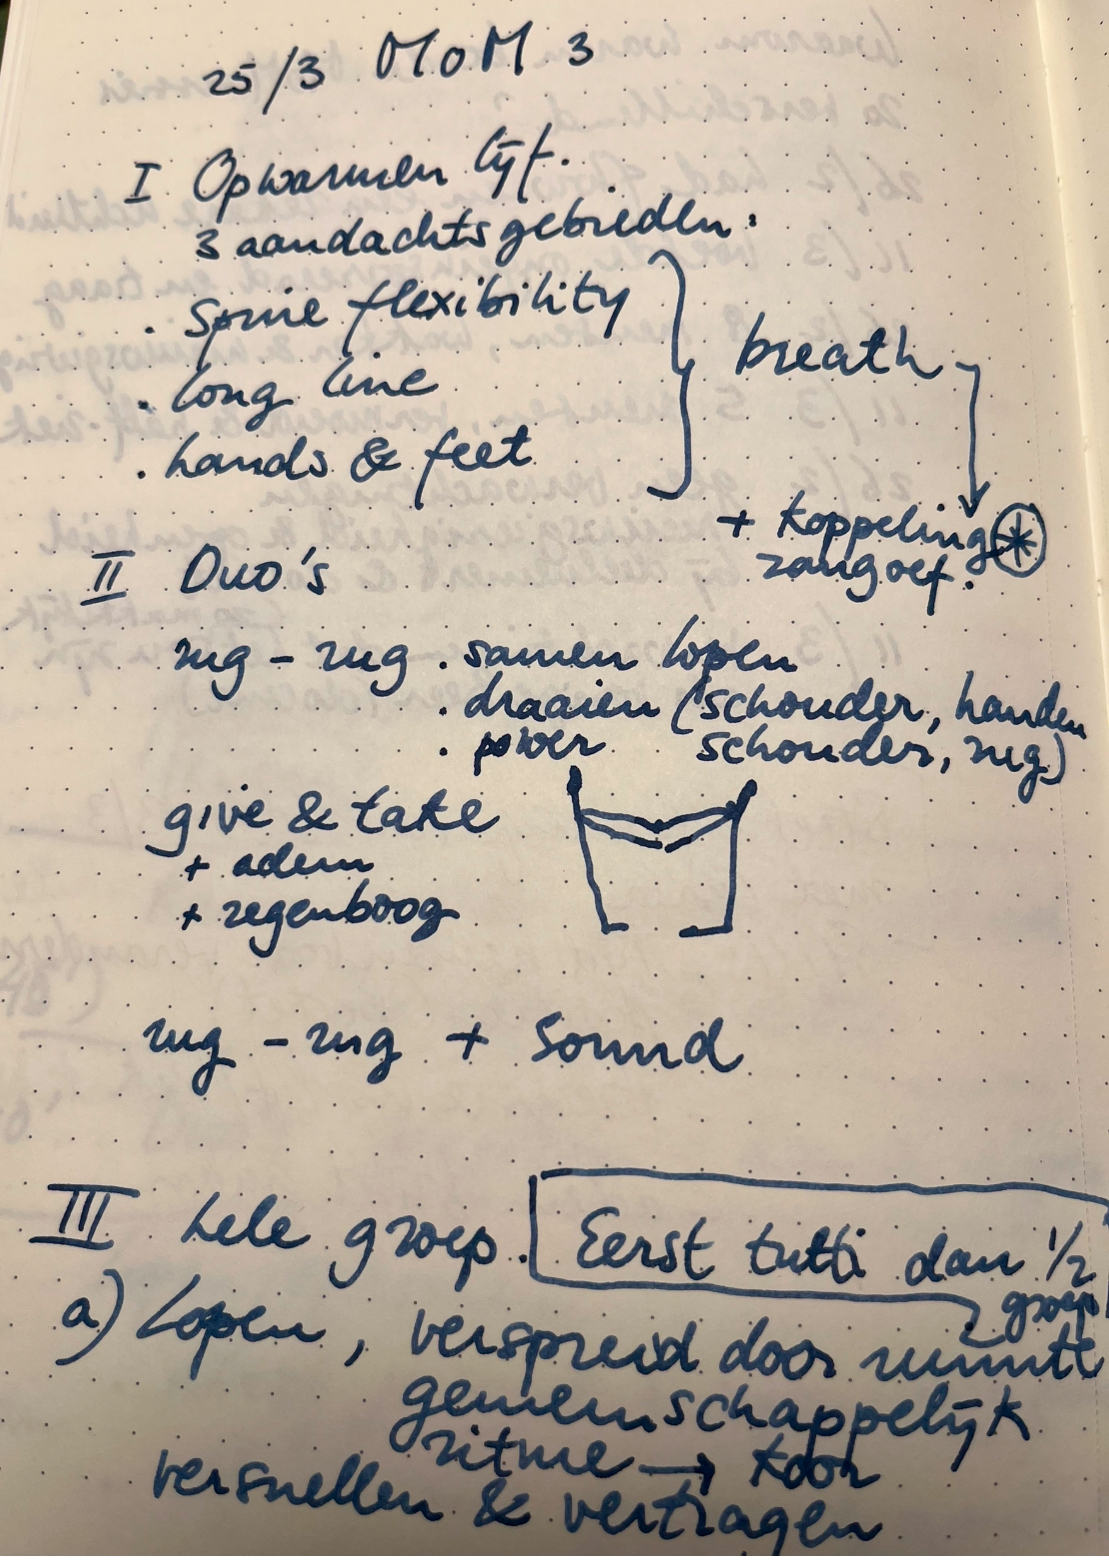 25/3 MoM 3
I Opwarmen lijf.
3 aandachtsgebieden:
. spine flexibility
. long line
. hands & feet
breath
+ koppeling
zangoef.
II Duo's
rug - rug . samen lopen
. draaien (schouder, handen
. power schouder, rug)
give & take
+ adem
+ regenboog
rug - rug + sound
III hele groep. Eerst tutti dan 1/2
groep
a) Lopen, verspreid door ruimte
gemeenschappelijk
ritme → koor
versnellen & vertragen